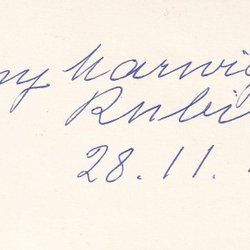 ny Marwig
Rubi
28.11.